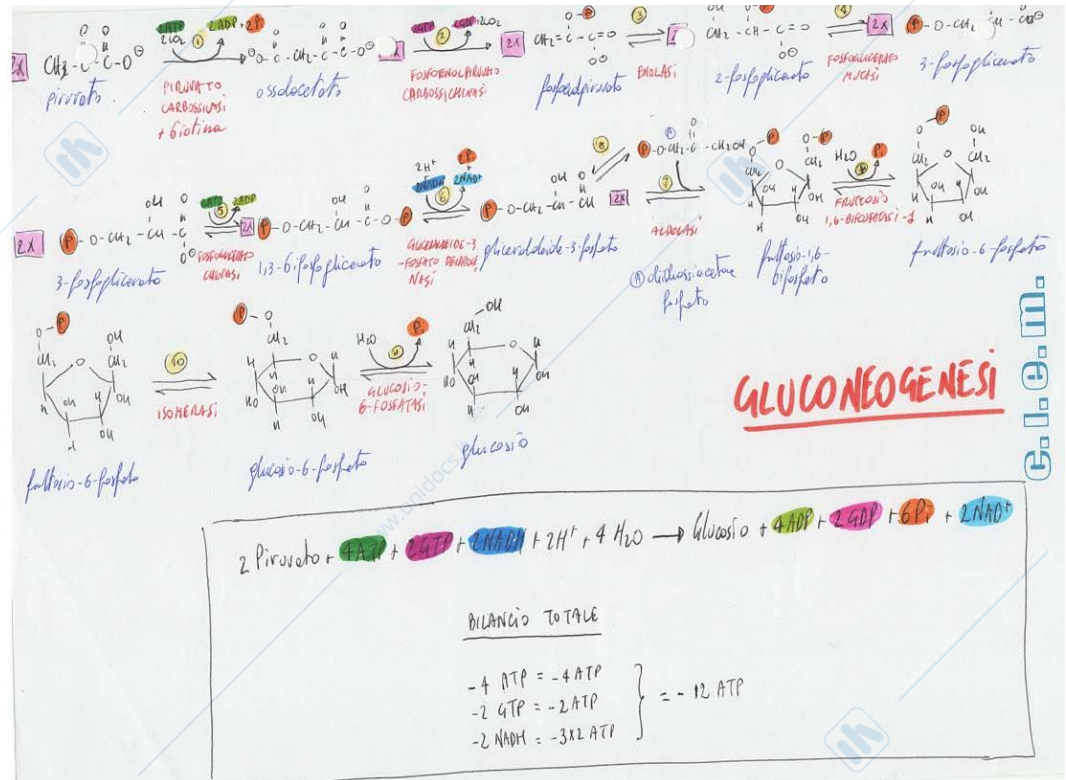 2ATP 2ADP + 2Pi
2CO2 1
2X CH3-C-C-O⊖
piruvato
PIRUVATO
CARBOSSILASI
+ biotina
ossalacetato
2GTP 2GDP+2CO2
2
2X
FOSFOENOLPIRUVATO
CARBOSSICHINASI
CH2=C-C=O
fosfoenolpiruvato
3
ENOLASI
2X
CH2-CH-C=O
2-fosfoglicerato
4
FOSFOGLICERATO
MUTASI
2X
P-O-CH2
3-fosfoglicerato
2X P-O-CH2-CH-C
3-fosfoglicerato
2ATP 2ADP
5
FOSFOGLICERATO
CHINASI
2X P-O-CH2-CH-C-O-P
1,3-bifosfoglicerato
2H+ 2Pi
+ +
2NADH 2NAD+
6
GLICERALDEIDE-3
-FOSFATO DEIDROGE
NASI
P-O-CH2-CH-CH 2X
gliceraldeide-3-fosfato
8
P-O-CH2-C-CH2OH
A
7
ALDOLASI
A diidrossiacetone
fosfato
fruttosio-1,6-
bifosfato
H2O Pi
9
FRUTTOSIO
1,6-BIFOSFATASI-1
fruttosio-6-fosfato
10
ISOMERASI
fruttosio-6-fosfato
glucosio-6-fosfato
H2O Pi
11
GLUCOSIO-
6-FOSFATASI
glucosio
GLUCONEOGENESI
e.l.e.m.
www.unidocs.
2 Piruvato + 4ATP + 2GTP + 2NADH + 2H+ + 4 H2O → Glucosio + 4ADP + 2GDP + 6Pi + 2NAD+
BILANCIO TOTALE
-4 ATP = -4ATP
-2 GTP = -2ATP
-2 NADH = -3x2 ATP
= -12 ATP